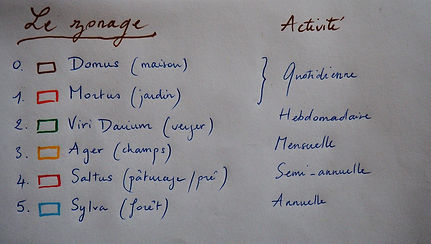 Le zonage
Activité
0. Domus (maison)
1. Mortus (jardin)
Quotidienne
2. Viri Darium (verger)
Hebdomadaire
3. Ager (champs)
Mensuelle
4. Saltus (pâturage/pré)
Semi-annuelle
5. Sylva (forêt)
Annuelle